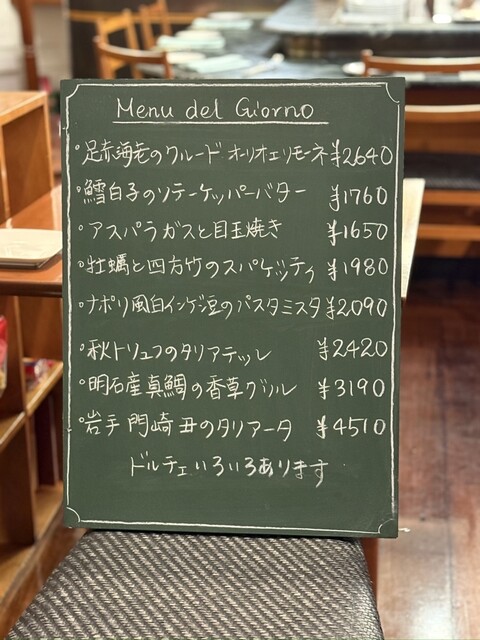 Menu del Giorno
・足赤海老のクルード オーリオエリモーネ ¥2640
・鱈白子のソテーケッパーバター ¥1760
・アスパラガスと目玉焼き ¥1650
・牡蠣と四方竹のスパゲッティ ¥1980
・ナポリ風白インゲン豆のパスタミスタ ¥2090
・秋トリュフのタリアテッレ ¥2420
・明石産真鯛の香草グリル ¥3190
・岩手 門崎 丑のタリアータ ¥4510
ドルチェいろいろあります